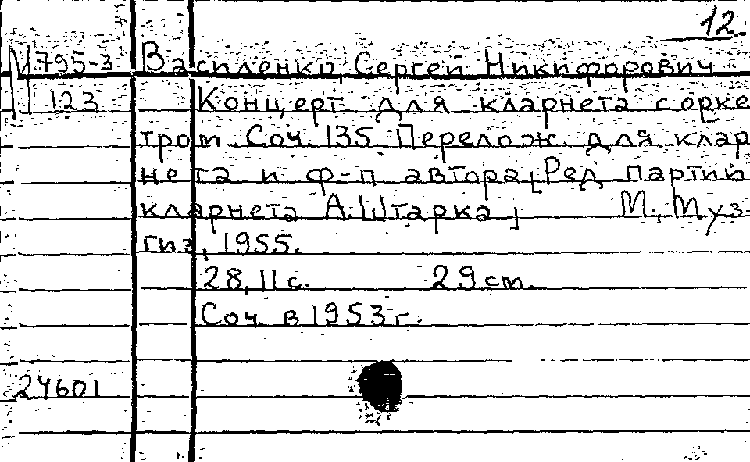 12.
М795-3 Василенко, Сергей Никифорович
123 Концерт для кларнета с орке
тром. Соч. 135. Перелож. для клар
нета и ф-п автора [Ред. партии
кларнета А. Штарка] М., Муз
гиз, 1955.
28, 11 с. 29 см.
Соч. в 1953 г.
24601